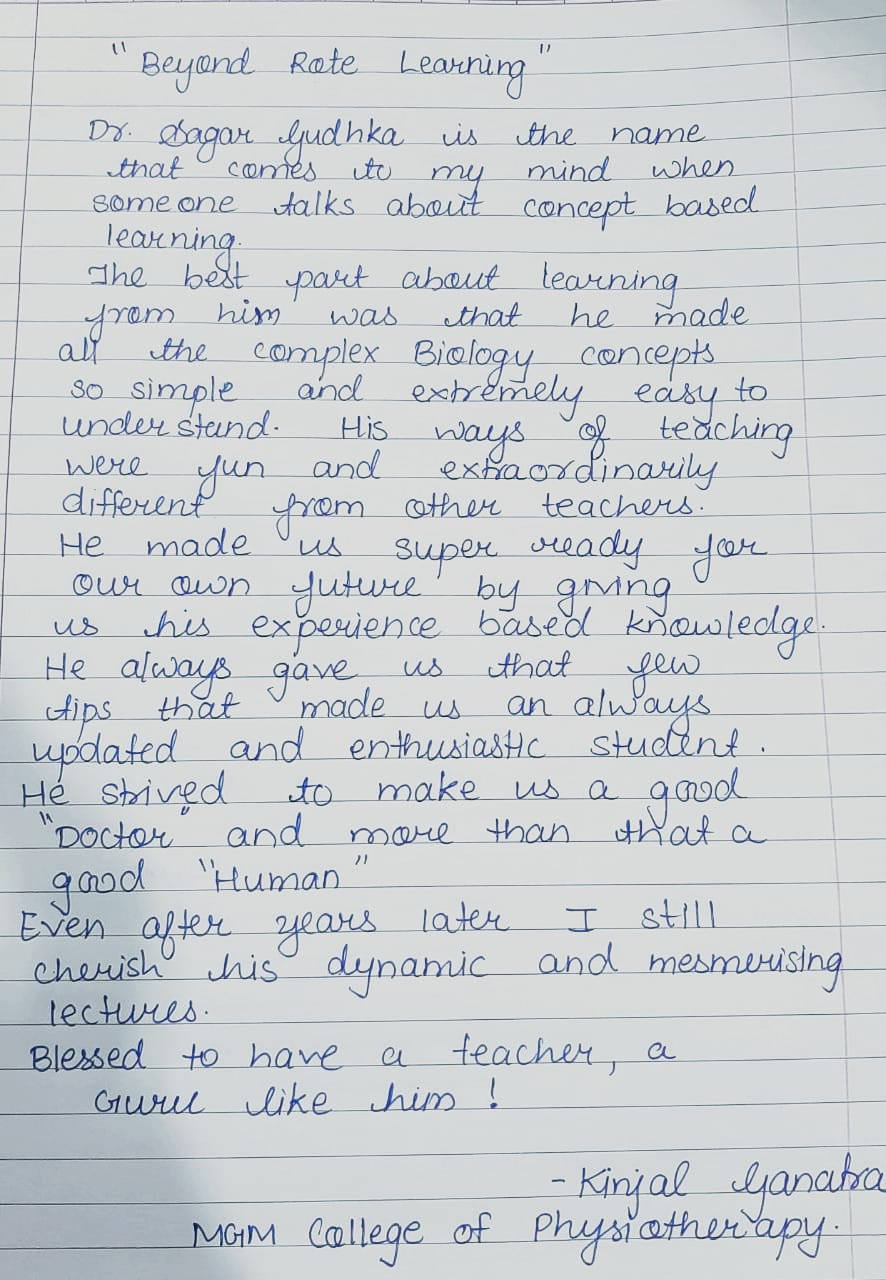 "Beyond Rote Learning"
Dr. Sagar Gudhka is the name
that comes to my mind when
someone talks about concept based
learning.
The best part about learning
from him was that he made
all the complex Biology concepts
so simple and extremely easy to
understand. His ways of teaching
were fun and extraordinarily
different from other teachers.
He made us super ready for
our own future by giving
us his experience based knowledge.
He always gave us that few
tips that made us an always
updated and enthusiastic student.
He strived to make us a good
"Doctor" and more than that a
good "Human"
Even after years later I still
cherish his dynamic and mesmerising
lectures.
Blessed to have a teacher, a
Guru like him!
- Kinjal Ganatra
MGM College of Physiotherapy.